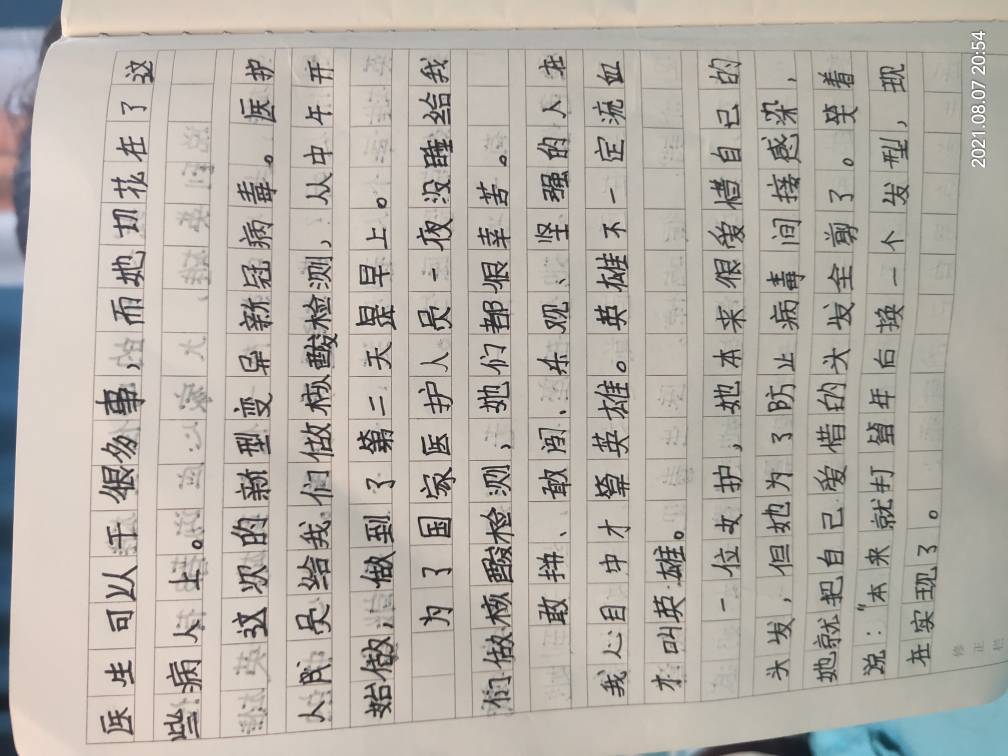 医生可以干很多事，而她却花在了这
些病人上。
这次的新型变异新冠病毒。医护
人员给我们做核酸检测，从中午开
始做，做到了第二天昱早上。
为了国家医护人员一夜没睡给我
们做核酸检测，她们都很幸苦。
敢拼、敢闯、乐观、坚强的人在
我心目中才算英雄。英雄不一定流血
才叫英雄。
一位女护，她本来很爱惜自己的
头发，但她为了防止病毒间接感染，
她就把自己爱惜的头发全剪了。笑着
说：“本来就打算年后换一个发型，现
在实现了。
修正栏
2021.08.07 20:54